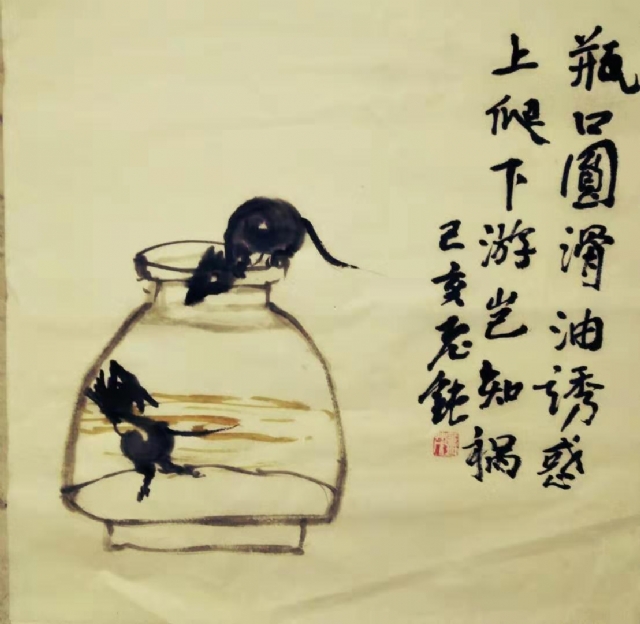 瓶口圓滑油誘惑
上爬下游岂知祸
己亥老鈍